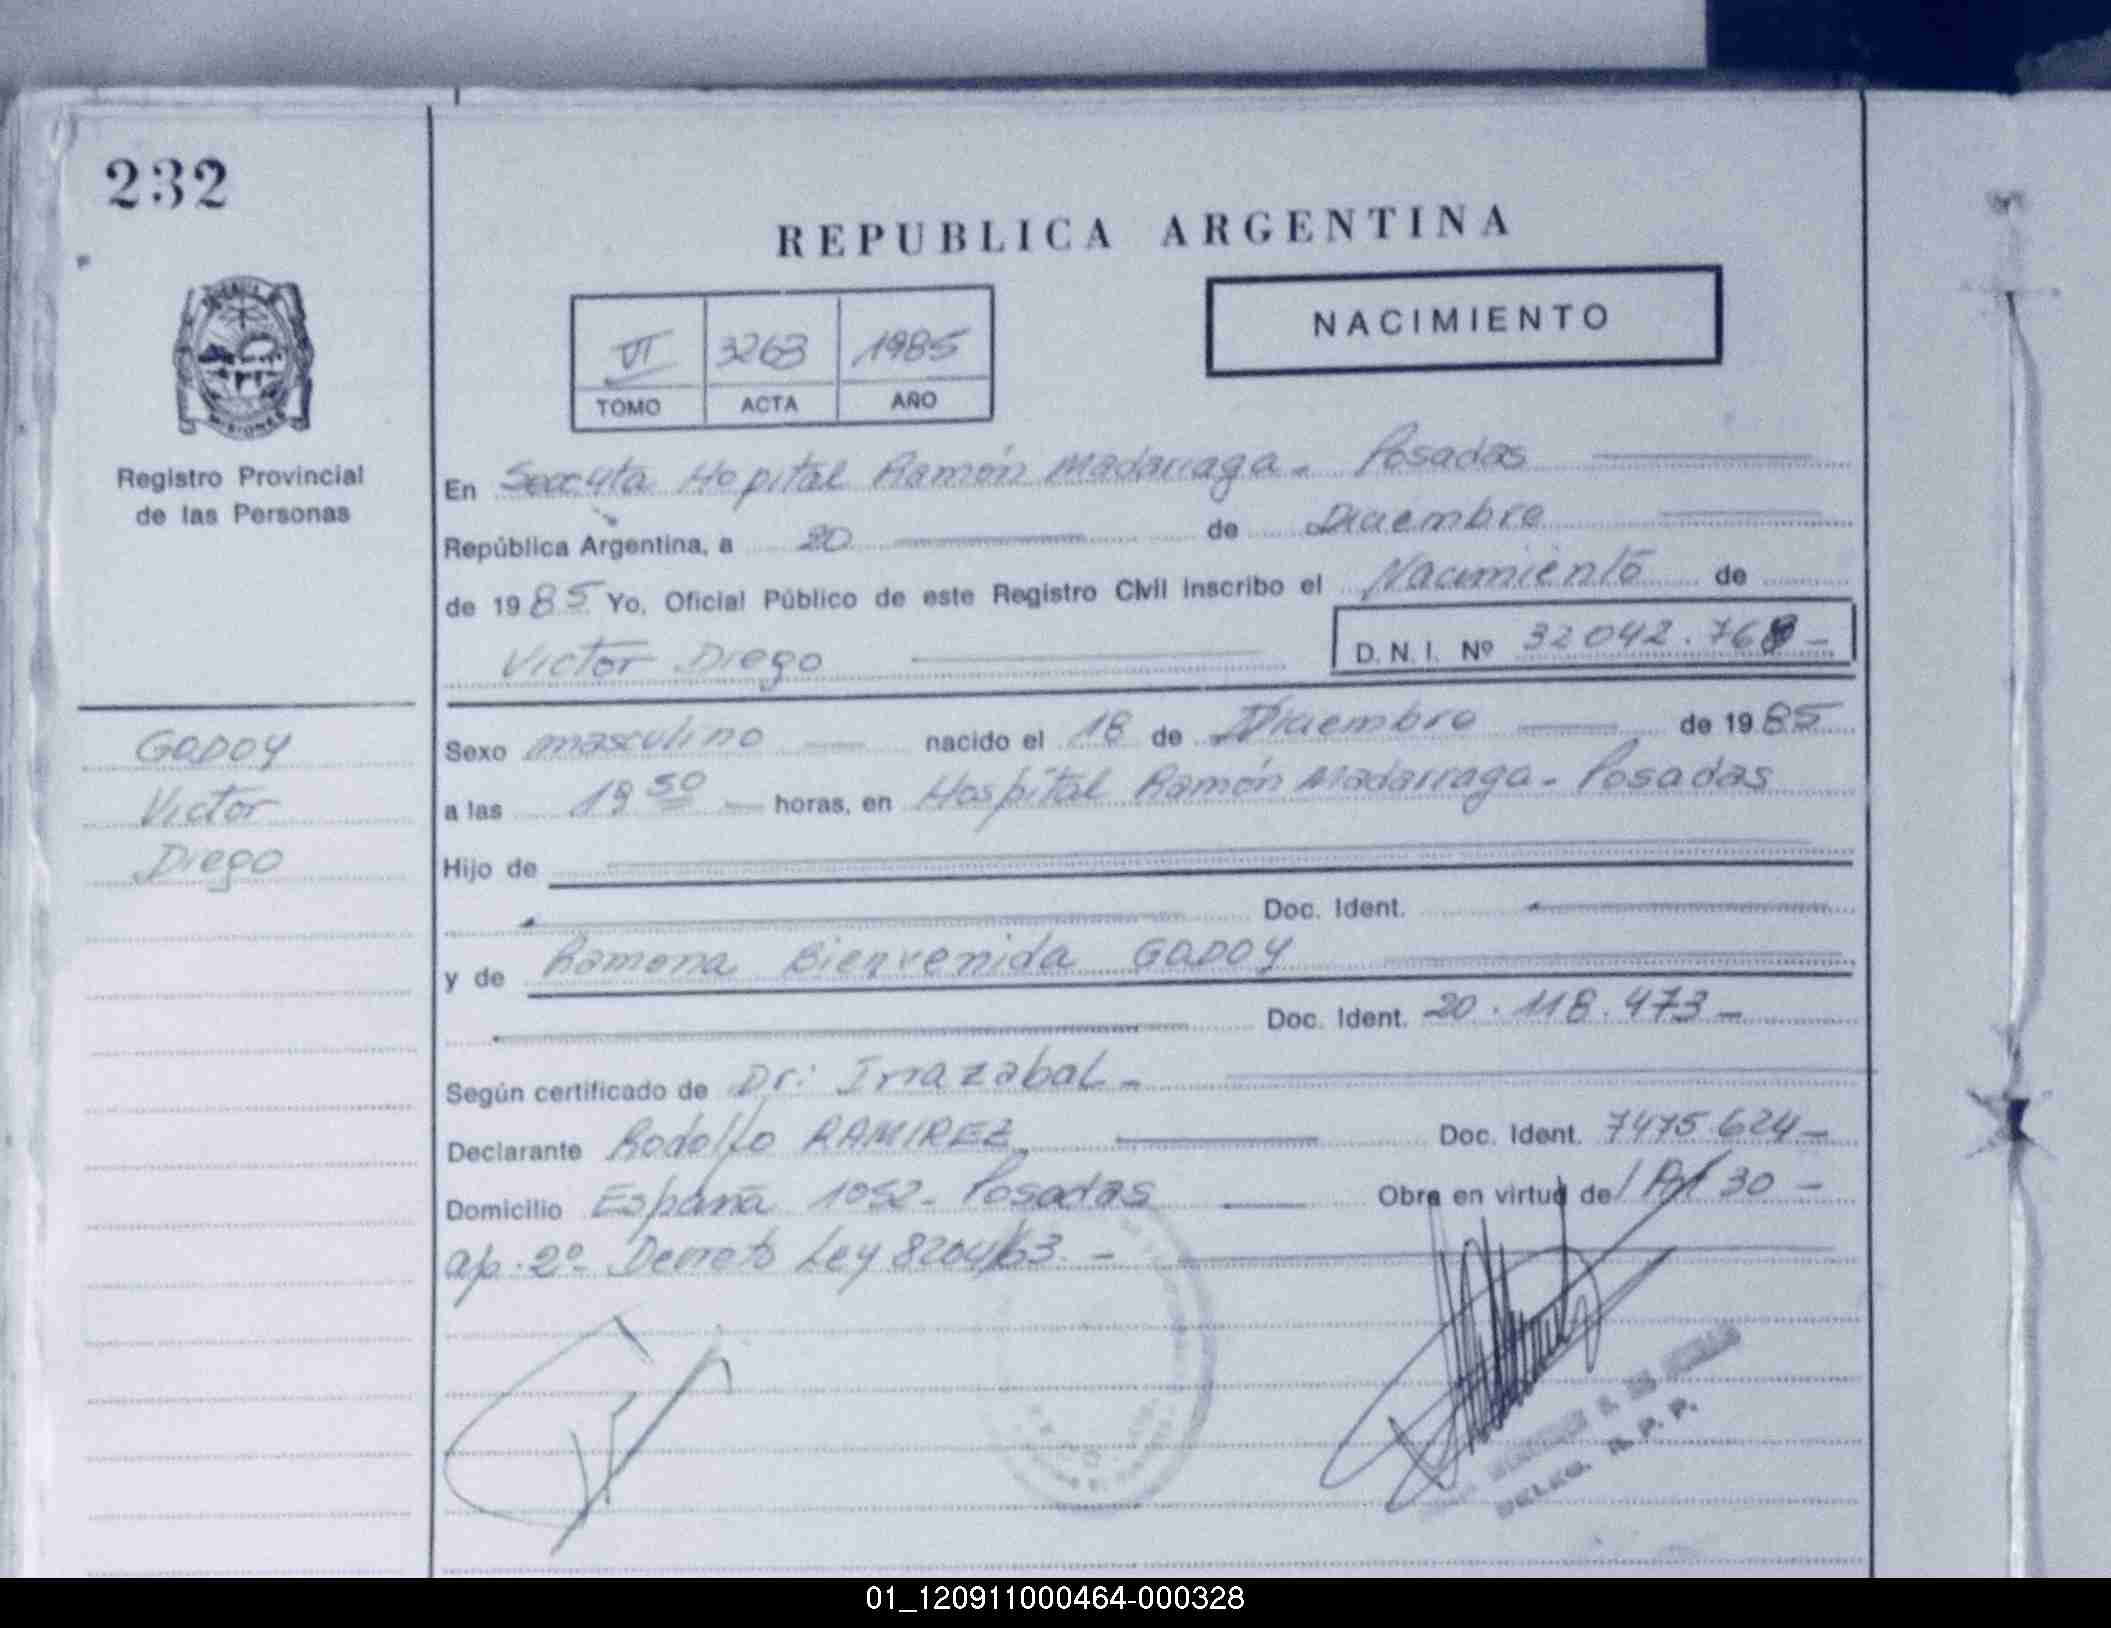 232
REPUBLICA ARGENTINA
NACIMIENTO
VI 3263 1985
TOMO ACTA AÑO
Registro Provincial
de las Personas
En Hopital Ramón Madarriaga - Posadas
República Argentina, a 20 de Diciembre
de 1985 Yo, Oficial Público de este Registro Civil inscribo el Nacimiento de
Victor Diego D. N. I. Nº 32042.768 -
GODOY
Victor
Diego
Sexo masculino nacido el 18 de Diciembre de 1985
a las 19 50 horas, en Hospital Ramón Madarriaga - Posadas
Hijo de
Doc. Ident.
y de Ramona Bienvenida GODOY
Doc. Ident. 20.118.473 -
Según certificado de Dr: Irrazabal -
Declarante Rodolfo RAMIREZ Doc. Ident. 7475.624 -
Domicilio España 1052 - Posadas Obra en virtud de 30 -
ap. 2º Decreto Ley 8204/63. -
DELEG. R. P. P.
01_120911000464-000328